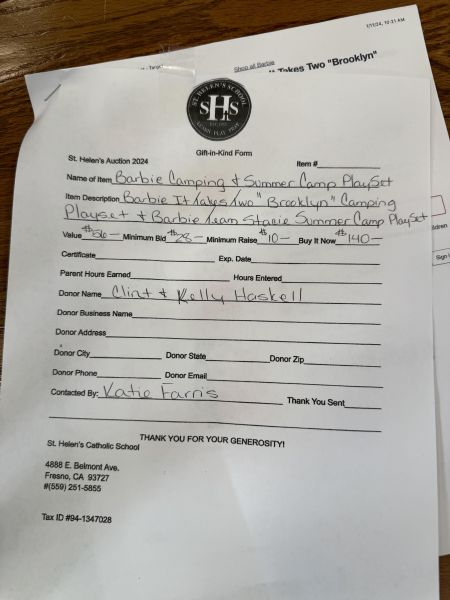 1/11/24, 10:21 AM
Shop all Barbie
Takes Two "Brooklyn"
ST. HELEN'S SCHOOL
SHS
LEARN PLAY PRAY
Gift-in-Kind Form
St. Helen's Auction 2024 Item #
Name of Item Barbie Camping & Summer Camp PlaySet
Item Description Barbie It takes Two "Brooklyn" Camping
Playset & Barbie Team Stacie Summer Camp PlaySet
Value $56- Minimum Bid $28- Minimum Raise $10- Buy It Now $140-
Certificate Exp. Date
Parent Hours Earned Hours Entered
Donor Name Clint & Kelly Haskell
Donor Business Name
Donor Address
Donor City Donor State Donor Zip
Donor Phone Donor Email
Contacted By: Katie Farris Thank You Sent
THANK YOU FOR YOUR GENEROSITY!
St. Helen's Catholic School
4888 E. Belmont Ave.
Fresno, CA 93727
#(559) 251-5855
Tax ID #94-1347028